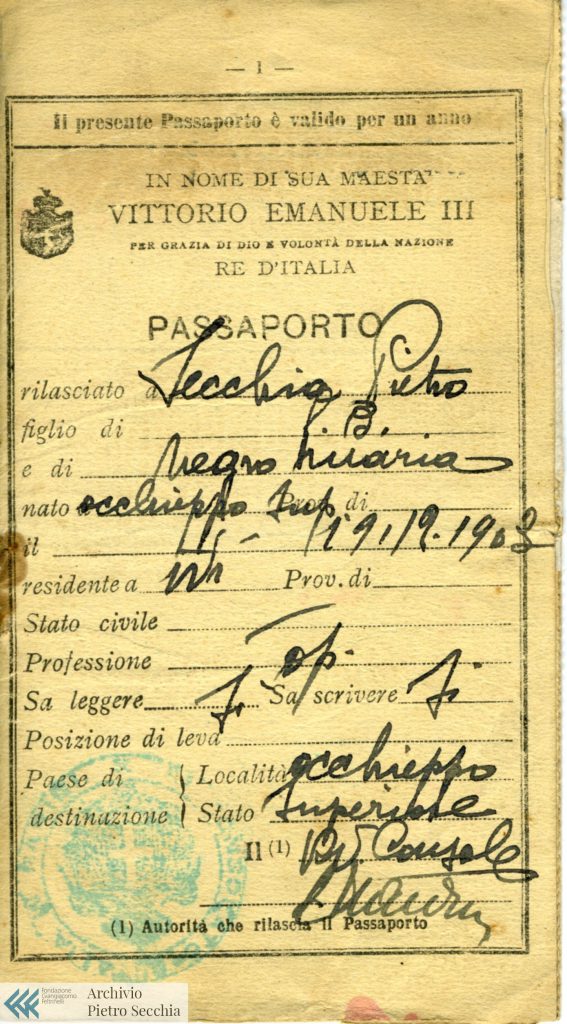 — 1 —
Il presente Passaporto è valido per un anno
IN NOME DI SUA MAESTA
VITTORIO EMANUELE III
PER GRAZIA DI DIO E VOLONTÀ DELLA NAZIONE
RE D'ITALIA
PASSAPORTO
rilasciato a Secchia Pietro
figlio di G. B.
e di Negro Maria
nato occhieppo Sup. Prov. di
il 19.12.1903
residente a ivi Prov. di
Stato civile
Professione op.
Sa leggere Si Sa scrivere Si
Posizione di leva
Paese di destinazione { Località occhieppo
Stato Superiore
Il (1) Console
(1) Autorità che rilascia il Passaporto
Fondazione Giangiacomo Feltrinelli
Archivio Pietro Secchia